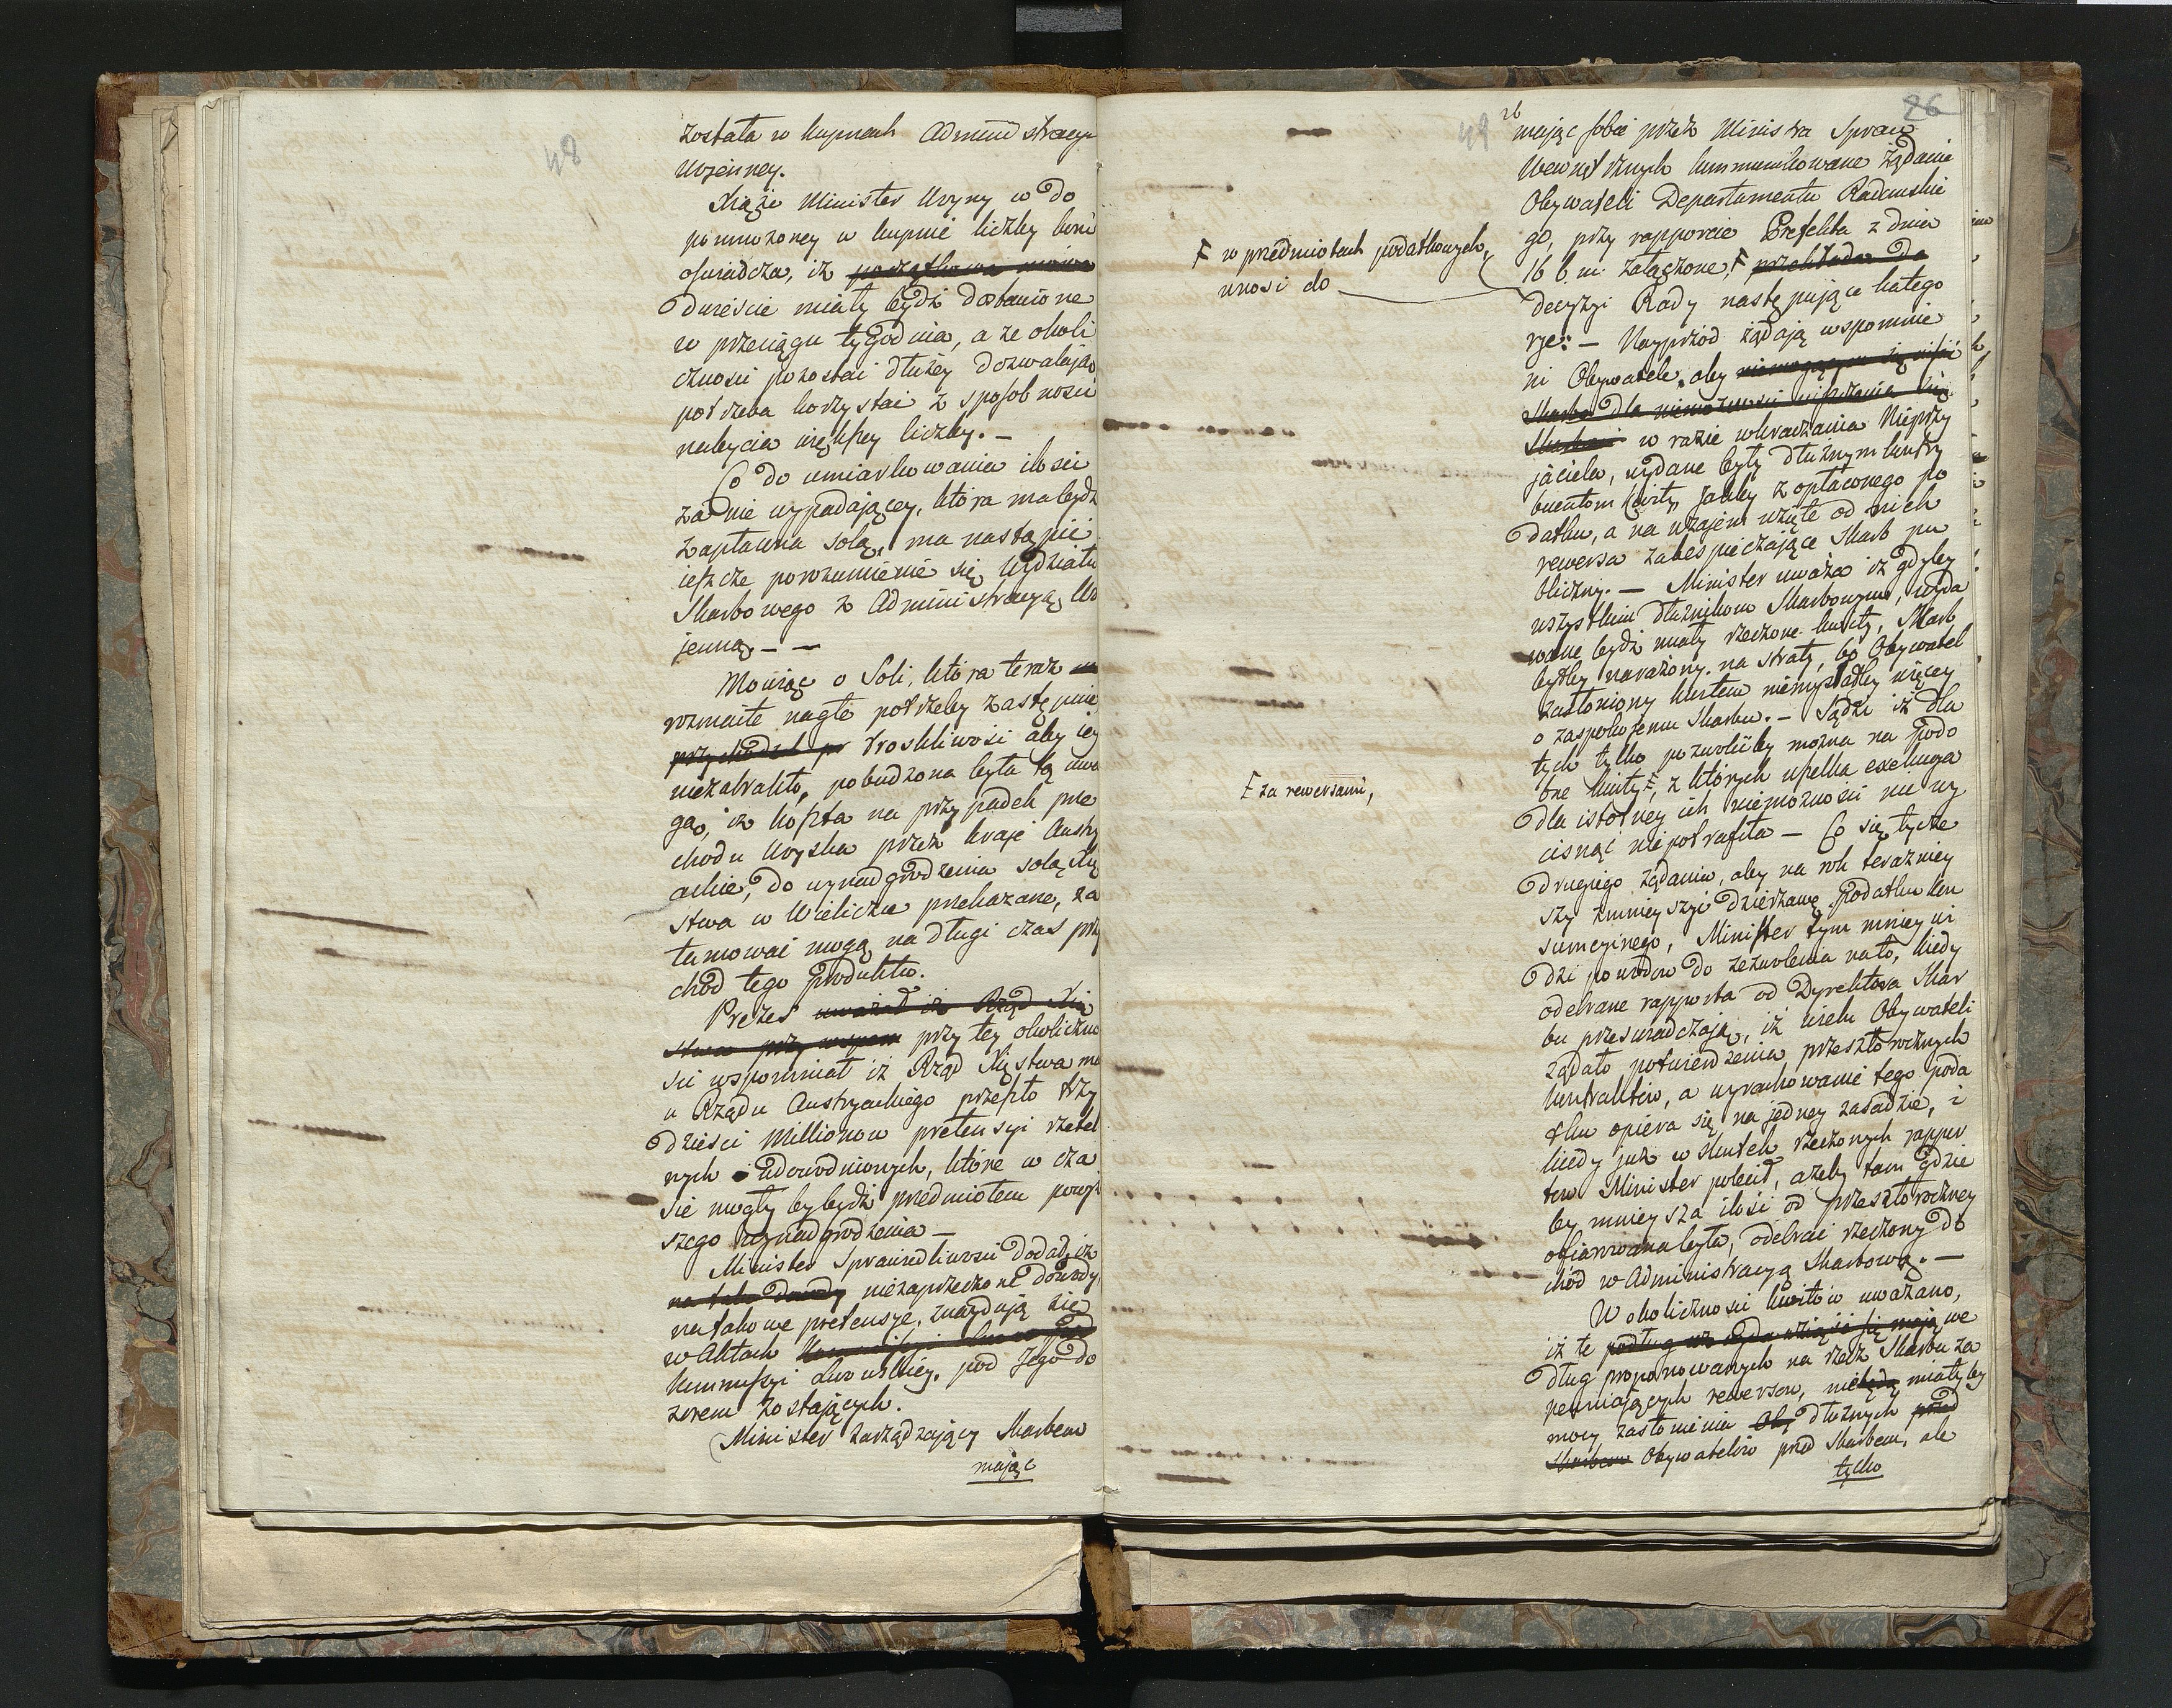 48
została w kupnach Administracyi
Wojenney.
Xiąże Minister Woyny w do
pomnożoney w kupnie liczby koni
oświadcza, iż początkowa mowa
dwieście miały bydź dostawione
w przeciągu tygodnia, a że okoli
czności pozostać dłużey dozwalają,
potrzeba korzystać z sposobności
nabycia większey liczby. —
Co do umiarkowania ilości
za nie wypadającey, która ma bydź
zapłacona solą, ma nastąpić
ieszcze porozumienie się Wydziału
Skarbowego z Administracyą Wo
jenną. — —
Mówiąc o Soli, która teraz
rozmaite nagłe potrzeby zastępuie
przychodzi po troskliwości aby iey
niezabrakło, pobudzona była tą uwa
gą, iż koszta na przypadek prze
chodu Woyska przez kraje Austry
ackie, do wynadgrodzenia solą Xię
stwa w Wieliczce przekazane, za
tamować mogą na długi czas przy
chód tego produktu.
Prezes uważał iż Rząd Xię
stwa przy wspom przy tey okoliczno
ści wspomniał iż Rząd Xięstwa ma
u Rządu Austryackiego przeszło trzy
dzieści Millionow pretensyi rzetel
nych i udowodnionych, które w cza
sie mogły by bydź przedmiotem powyż
szego wynadgrodzenia —
Minister Sprawiedliwości dodał, iż
na tak dowody niezaprzeczone dowody
na takowe pretensye, znayduią się
w Aktach
Kommissyi Lwowskiey, pod Jego do
zorem zostających.
Minister zarządzający Skarbem
mając
49
26
26
mając sobie przez Ministra Spraw
Wewnętrznych kommunikowane żądanie
Obywateli Departamentu Radomskie
go, przy rapporcie Prefekta z dnia
16 b. m. załączone, F przekłada do
F w przedmiotach podatkowych,
wnosi do
decyzyi Rady następujące katego
rye: — Nayprzód żądają wspomnie
ni Obywatele, aby niemogącym się uiścić
Skarbo dla niemożności uiszczenia się
Skarbowi w razie wkraczania Nieprzy
jaciela, wydane były dłużnym kontry
buentom kwity, jakby z opłaconego po
datku, a na wzajem wzięte od nich
rewersa zabespieczające Skarb pu
bliczny. — Minister uważa iż gdyby
wszystkim dłużnikom Skarbowym, wyda
wane bydź miały rzeczone kwity, Skarb
byłby narażony na straty, bo Obywatel
zasłoniony kwitem niemyślałby więcey
o zaspokojeniu Skarbu. — Sądzi iż dla
tych tylko pozwolićby można na podo
bne kwity F, z których wszelka exekucya
F za rewersami,
dla istotney ich niemożności nic wy
cisnąć niepotrafiła — Co się tycze
drugiego żądania, aby na rok teraźniey
szy zmnieyszyć dzierżawę Podatku kon
sumcyinego, Minister tym mniey wi
dzi powodow do zezwolenia na to, kiedy
odebrane rapporta od Dyrektora Skar
bu przeświadczają, iż wielu Obywateli
żądało potwierdzenia przeszłorocznych
kontraktów, a wyrachowanie tego poda
tku opiera się na jedney zasadzie, i
kiedy już w skutek rzeczonych rappor
tow Minister polecił, ażeby tam gdzie
by mnieysza ilość od przeszłoroczney
ofiarowana była, odebrać rzeczony do
chód w Administracyą Skarbową. —
W okoliczności kwitów uważano,
iż te podług wziąść się mają we
dług proponowanych na rzecz Skarbu za
pewniających rewersow, niebędą miałyby
mocy zasłonienia Oby dłużnych przed
Skarbem Obywatelów przed Skarbem, ale
tylko